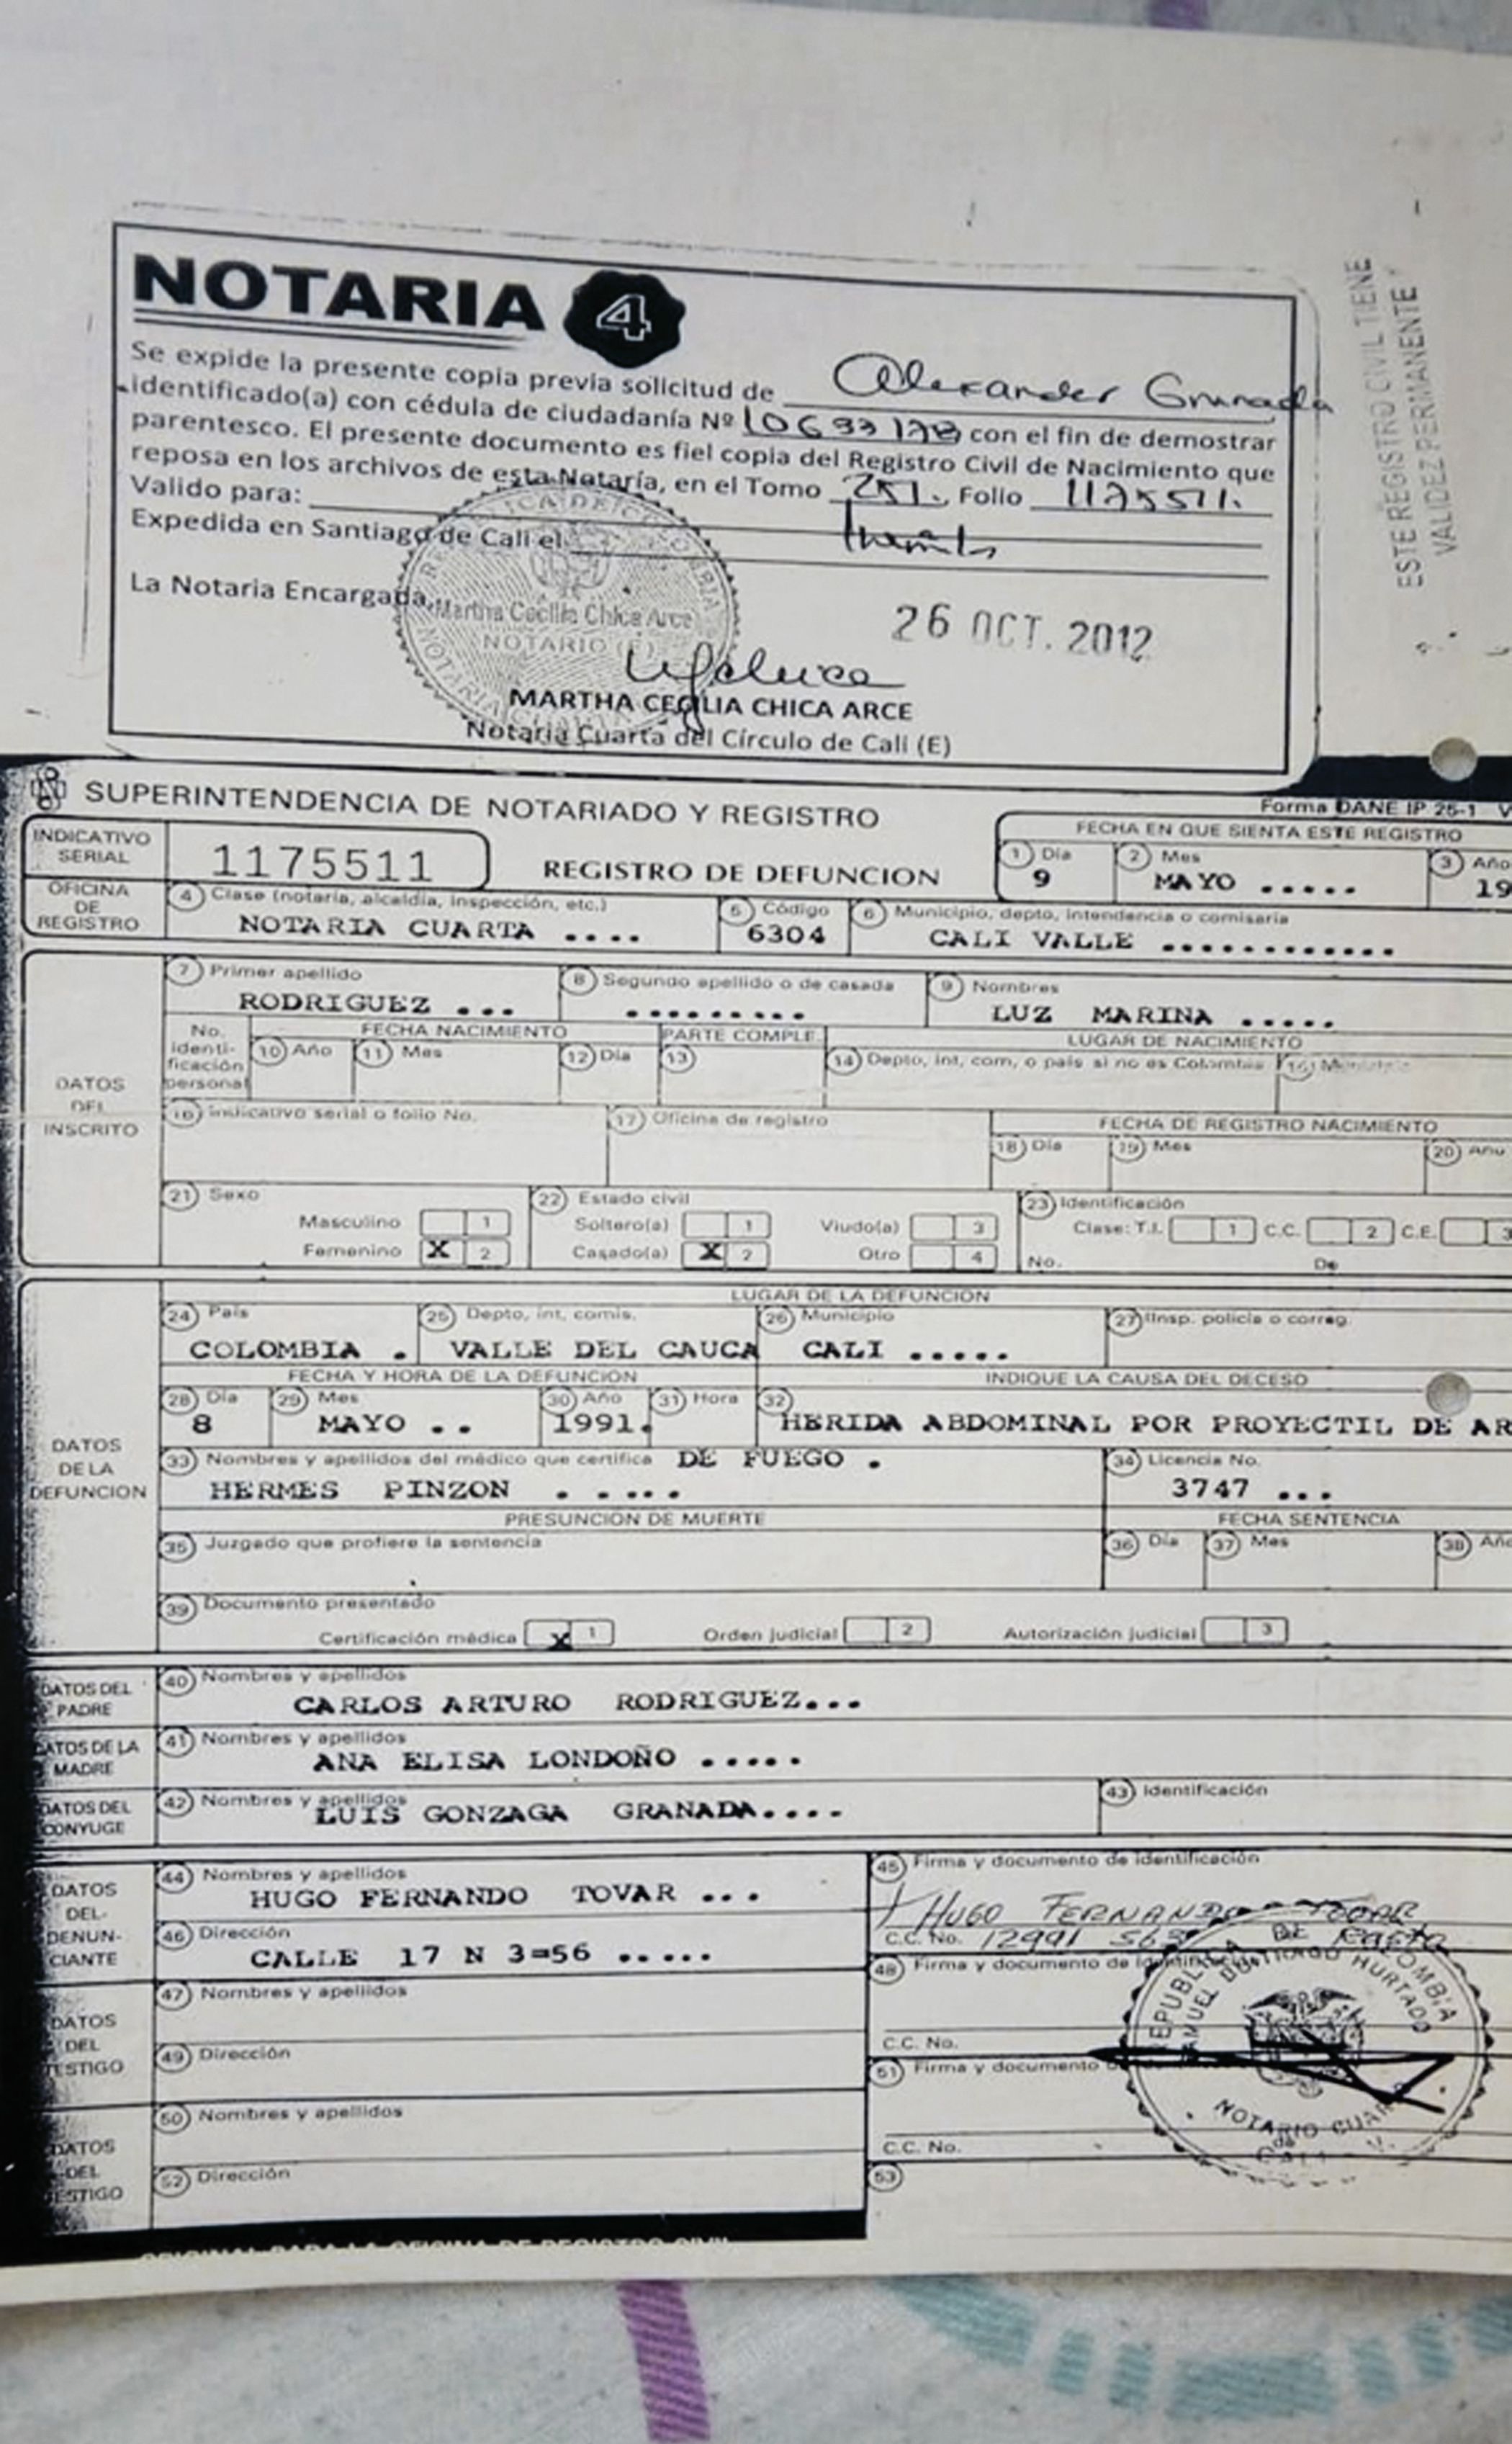 NOTARIA 4
Se expide la presente copia previa solicitud de Alexander Granada
identificado(a) con cédula de ciudadanía Nº con el fin de demostrar
parentesco. El presente documento es fiel copia del Registro Civil de Nacimiento que
reposa en los archivos de esta Notaría, en el Tomo 251. Folio 1175511.
Valido para:
Expedida en Santiago de Cali el
La Notaria Encargada,
Martha Cecilia Chica Arce
NOTARIO (E)
26 OCT. 2012
MARTHA CECILIA CHICA ARCE
Notaria Cuarta del Círculo de Cali (E)
ESTE REGISTRO CIVIL TIENE
VALIDEZ PERMANENTE
SUPERINTENDENCIA DE NOTARIADO Y REGISTRO
Forma DANE IP 25-1 V
INDICATIVO SERIAL 1175511 REGISTRO DE DEFUNCION
FECHA EN QUE SIENTA ESTE REGISTRO
1 Día 2 Mes 3 Año
9 MAYO ..... 19
OFICINA DE REGISTRO
4 Clase (notaría, alcaldía, inspección, etc.) 5 Código 6 Municipio, depto, intendencia o comisaría
NOTARIA CUARTA .... 6304 CALI VALLE ............
DATOS DEL INSCRITO
7 Primer apellido 8 Segundo apellido o de casada 9 Nombres
RODRIGUEZ ... ......... LUZ MARINA .....
No. identificación personal FECHA NACIMIENTO PARTE COMPLE. LUGAR DE NACIMIENTO
10 Año 11 Mes 12 Día 13 14 Depto, int, com, o país si no es Colombia
16 Indicativo serial o folio No. 17 Oficina de registro FECHA DE REGISTRO NACIMIENTO
18 Día 19 Mes 20 Año
21 Sexo 22 Estado civil 23 Identificación
Masculino 1 Soltero(a) 1 Viudo(a) 3 Clase: T.I. 1 C.C. 2 C.E. 3
Femenino X 2 Casado(a) X 2 Otro 4 No. De
DATOS DE LA DEFUNCION
LUGAR DE LA DEFUNCION
24 País 25 Depto, int, comis. 26 Municipio 27 Insp. policía o correg.
COLOMBIA . VALLE DEL CAUCA CALI .....
FECHA Y HORA DE LA DEFUNCION INDIQUE LA CAUSA DEL DECESO
28 Día 29 Mes 30 Año 31 Hora 32
8 MAYO .. 1991. HERIDA ABDOMINAL POR PROYECTIL DE AR
33 Nombres y apellidos del médico que certifica DE FUEGO . 34 Licencia No.
HERMES PINZON ..... 3747 ...
PRESUNCION DE MUERTE FECHA SENTENCIA
35 Juzgado que profiere la sentencia 36 Día 37 Mes 38 Año
39 Documento presentado
Certificación médica X 1 Orden judicial 2 Autorización judicial 3
DATOS DEL PADRE
40 Nombres y apellidos
CARLOS ARTURO RODRIGUEZ...
DATOS DE LA MADRE
41 Nombres y apellidos
ANA ELISA LONDOÑO .....
DATOS DEL CONYUGE
42 Nombres y apellidos 43 Identificación
LUIS GONZAGA GRANADA....
DATOS DEL DENUNCIANTE
44 Nombres y apellidos 45 Firma y documento de identificación
HUGO FERNANDO TOVAR ... HUGO FERNANDO TOVAR
46 Dirección C.C. No. de Pasto
CALLE 17 N 3=56 .....
48 Firma y documento de identificación
DATOS DEL TESTIGO
47 Nombres y apellidos
49 Dirección C.C. No.
51 Firma y documento
DATOS DEL TESTIGO
50 Nombres y apellidos
C.C. No.
52 Dirección 53
REPUBLICA DE COLOMBIA
HURTADO
NOTARIO CUARTO
ORIGINAL PARA LA OFICINA DE REGISTRO CIVIL